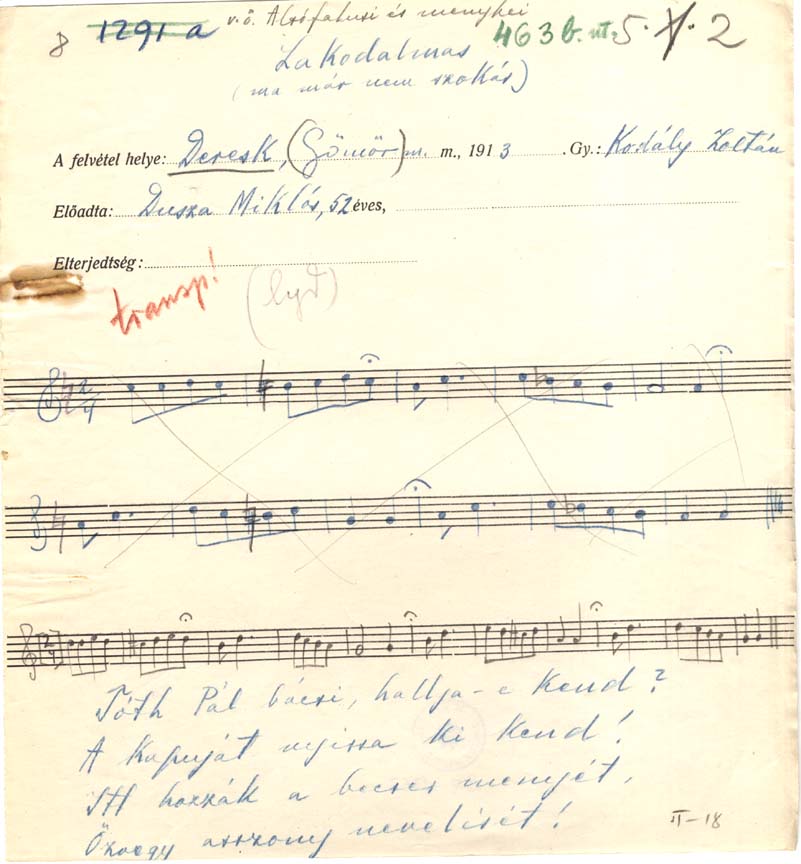 8 1291 a v.ö. Alsófalusi és menyhei
463 b. nt. 5. 1. 2
Lakodalmas
(ma már nem szokás)
A felvétel helye: Deresk, (Gömör) m. m., 1913 . Gy.: Kodály Zoltán
Előadta: Dusza Miklós, 52 éves,
Elterjedtség:
transp! (lyd)
2/4
Tóth Pál bácsi, hallja-e kend?
A kapuját nyissa ki kend!
Itt hozzák a becses menyjét,
Özvegy asszony nevelisét!
II-18